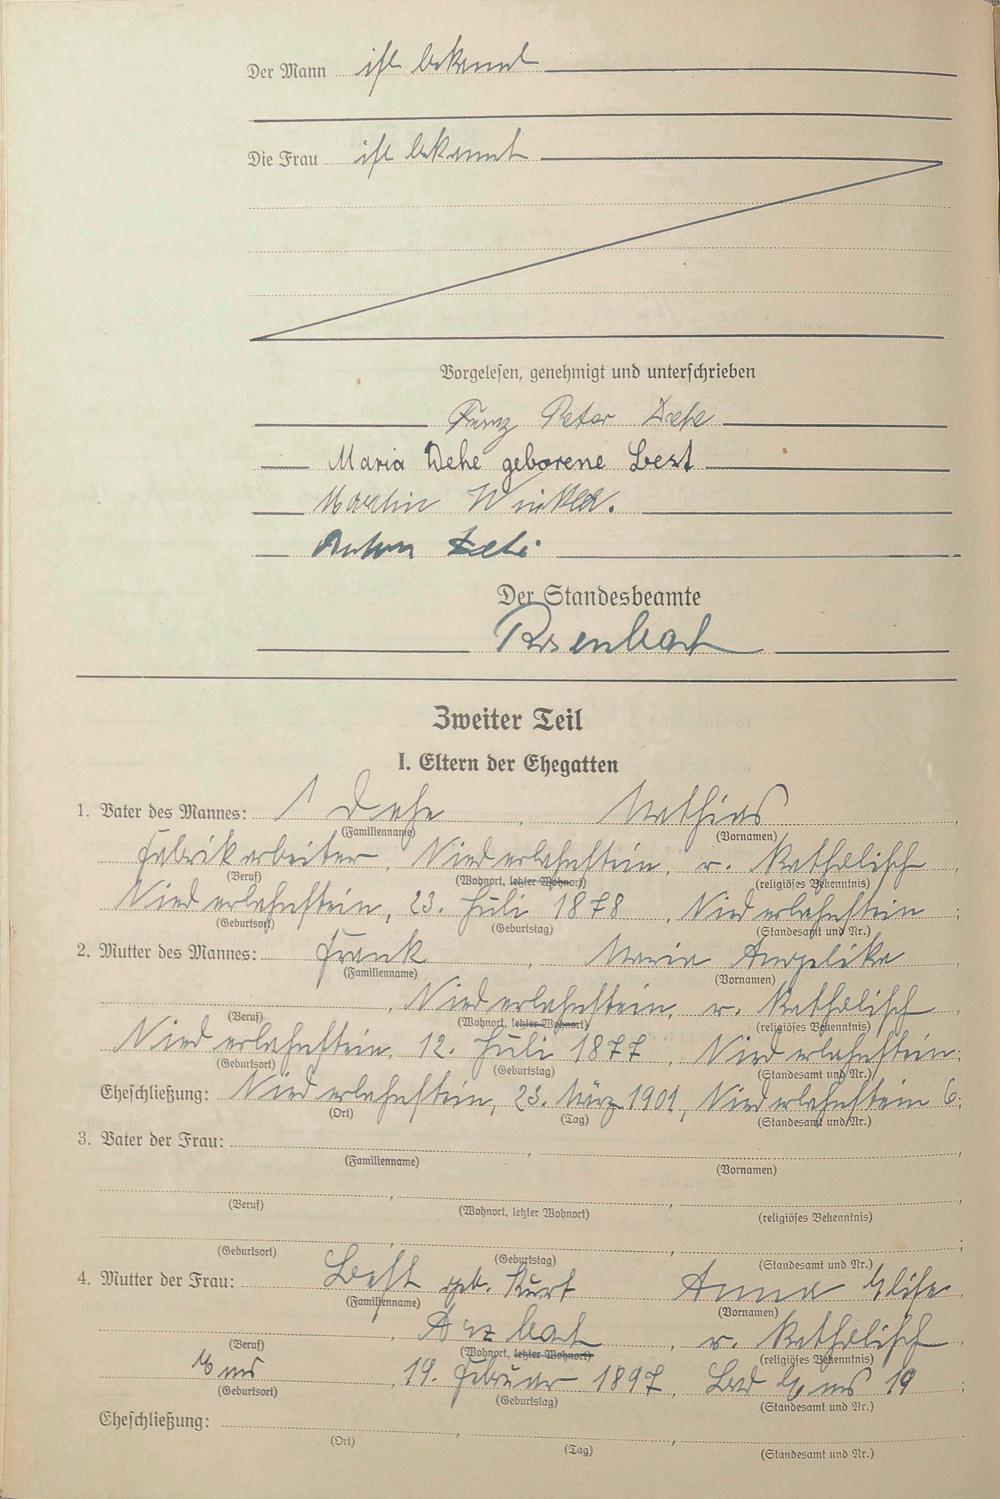 Der Mann ist bekannt
Die Frau ist bekannt
Vorgelesen, genehmigt und unterschrieben
Franz Peter Dehe
Maria Dehe geborene Best
Martin Winkler.
Anton
Der Standesbeamte
Rosenbach
Zweiter Teil
I. Eltern der Ehegatten
1. Vater des Mannes: Dehe, Mathias,
(Familienname) (Vornamen)
Fabrikarbeiter, Niederlahnstein, r. katholisch
(Beruf) (Wohnort, letzter Wohnort) (religiöses Bekenntnis)
Niederlahnstein, 23. Juli 1878, Niederlahnstein;
(Geburtsort) (Geburtstag) (Standesamt und Nr.)
2. Mutter des Mannes: Frank, Maria Angelika,
(Familienname) (Vornamen)
, Niederlahnstein, r. katholisch
(Beruf) (Wohnort, letzter Wohnort) (religiöses Bekenntnis)
Niederlahnstein, 12. Juli 1877, Niederlahnstein;
(Geburtsort) (Geburtstag) (Standesamt und Nr.)
Eheschließung: Niederlahnstein, 23. März 1901, Niederlahnstein 6;
(Ort) (Tag) (Standesamt und Nr.)
3. Vater der Frau: , ,
(Familienname) (Vornamen)
, ,
(Beruf) (Wohnort, letzter Wohnort) (religiöses Bekenntnis)
, , ;
(Geburtsort) (Geburtstag) (Standesamt und Nr.)
4. Mutter der Frau: Best geb. Kurt Anna Elise,
(Familienname) (Vornamen)
, Arzbach, r. katholisch,
(Beruf) (Wohnort, letzter Wohnort) (religiöses Bekenntnis)
Ems, 19. Februar 1897, Bad Ems 19;
(Geburtsort) (Geburtstag) (Standesamt und Nr.)
Eheschließung: , ,
(Ort) (Tag) (Standesamt und Nr.)